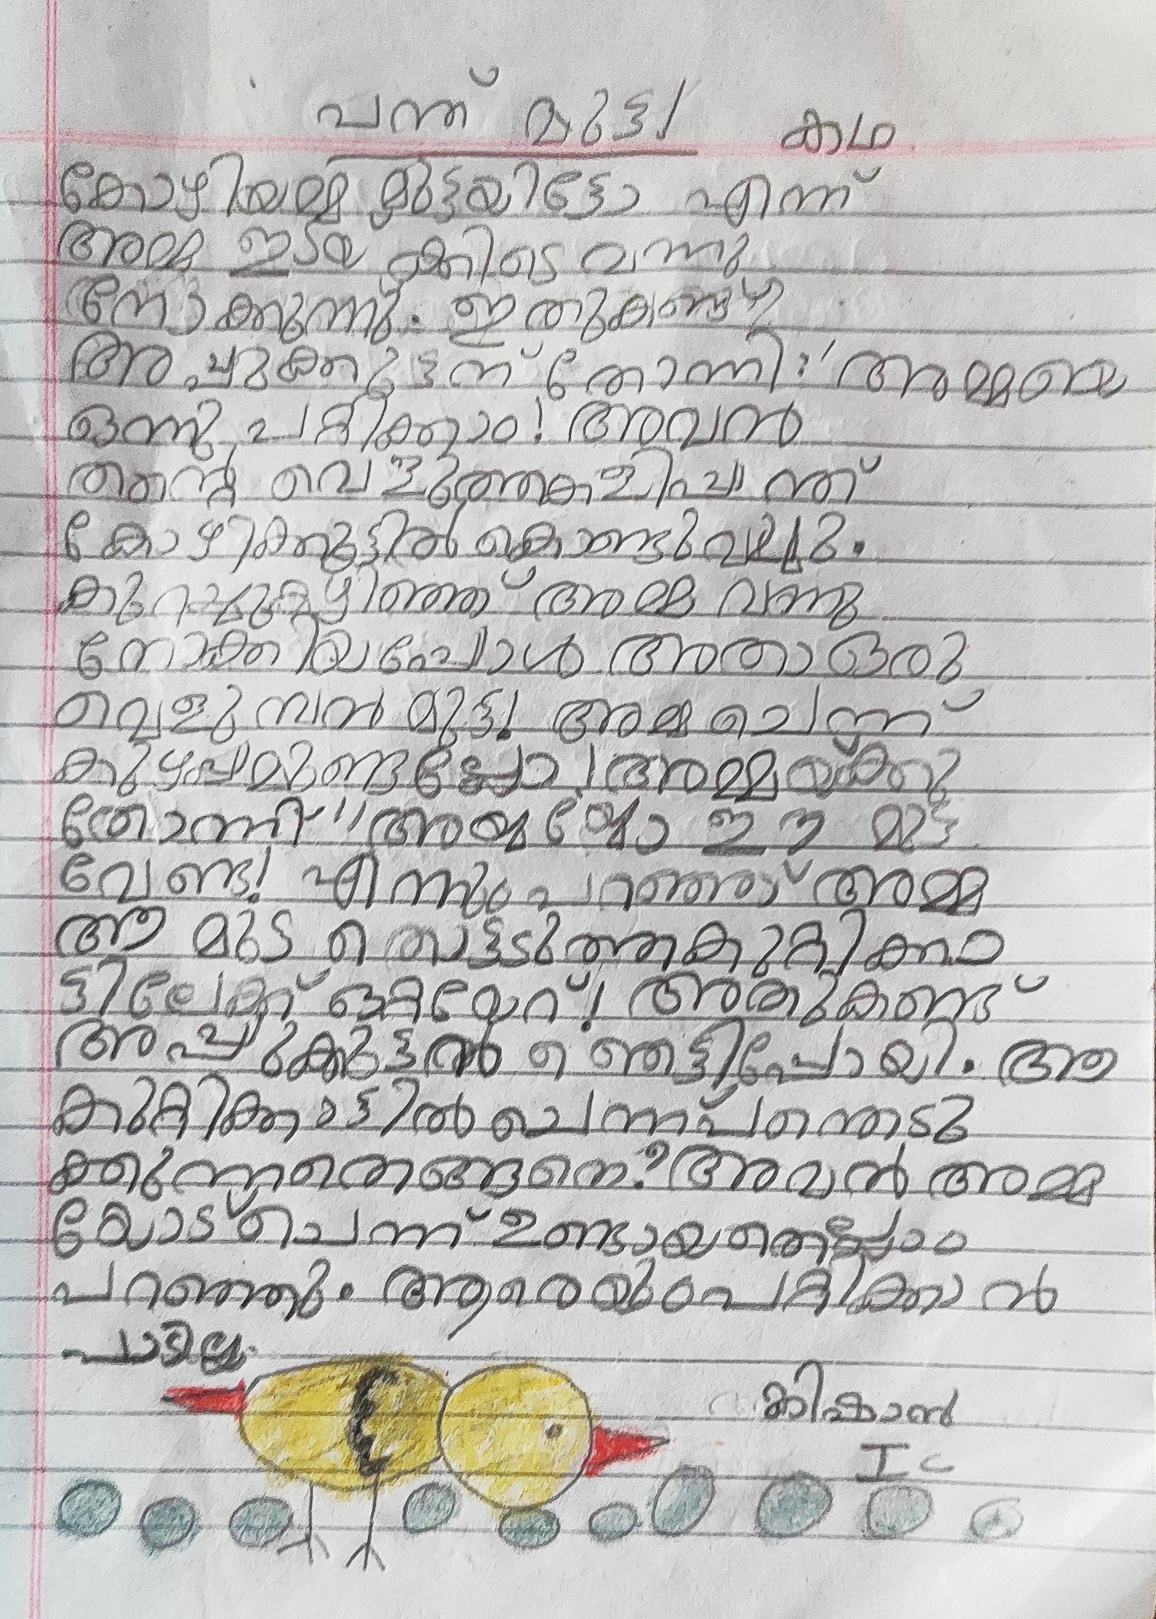 പന്ത് മുട്ട! കഥ
കോഴിയമ്മ മുട്ടയിട്ടോ എന്ന്
അമ്മ ഇടയ്ക്കിടെ വന്നു
നോക്കുന്നു. ഇതുകണ്ട
അപ്പുക്കുട്ടന് തോന്നി: 'അമ്മയെ
ഒന്നു പറ്റിക്കാം! അവൻ
തന്റെ വെളുത്തകളിപ്പന്ത്
കോഴിക്കൂട്ടിൽ കൊണ്ടുവച്ചു.
കുറച്ചുകഴിഞ്ഞ് അമ്മ വന്നു
നോക്കിയപ്പോൾ അതാ ഒരു
വെളുമ്പൻ മുട്ട! അമ്മ ചെന്ന്
കുഴപ്പമുണ്ടല്ലോ! അമ്മയ്ക്കു
തോന്നി "അയ്യയ്യോ ഈ മുട്ട
വേണ്ട! എന്നും പറഞ്ഞ് അമ്മ
ആ മുട തൊട്ടടുത്തകുറ്റിക്കാ
ട്ടിലേക്ക് ഒറ്റയേറ്! അതുകണ്ട്
അപ്പുക്കുട്ടൻ ഞെട്ടിപ്പോയി. ആ
കുറ്റിക്കാട്ടിൽ ചെന്ന്പന്തെടു
ക്കുന്നതെങ്ങനെ? അവൻ അമ്മ
യോട് ചെന്ന് ഉണ്ടായതെല്ലാം
പറഞ്ഞു. ആരെയും പറ്റിക്കാൻ
പാടില്ല.
I C